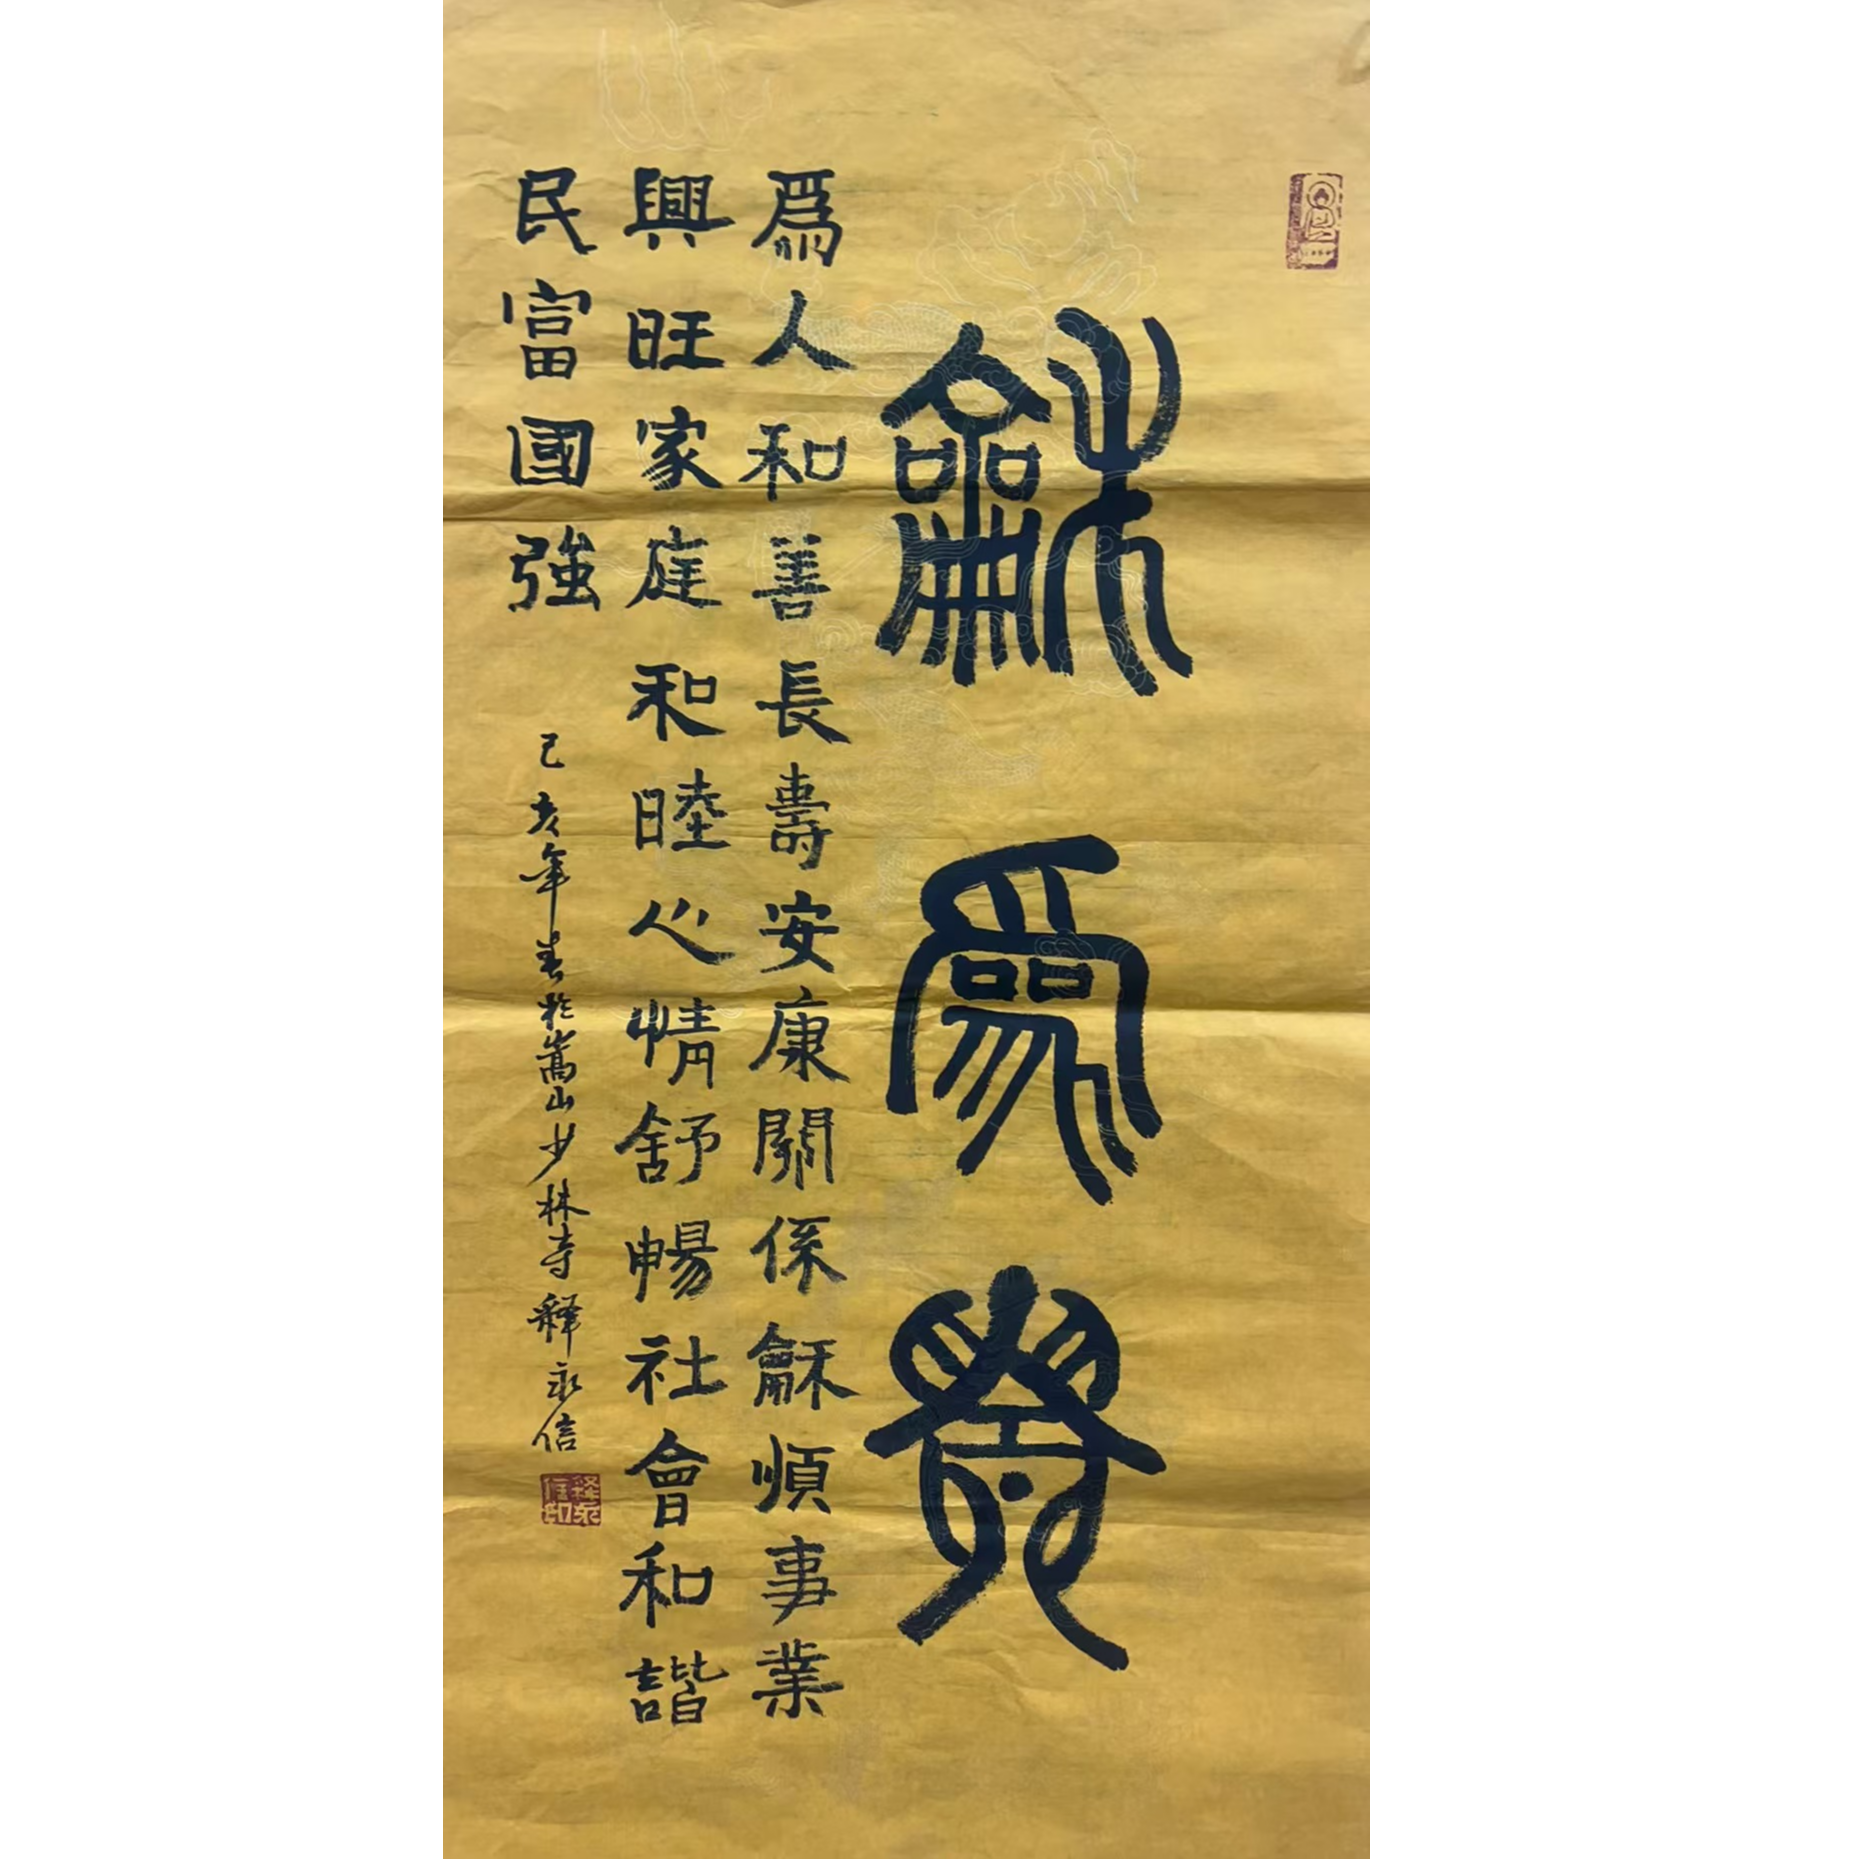 龢為貴
爲人和善長壽安康關係龢順事業
興旺家庭和睦心情舒暢社會和諧
民富國強
己亥年春於嵩山少林寺釋永信
釋永信印